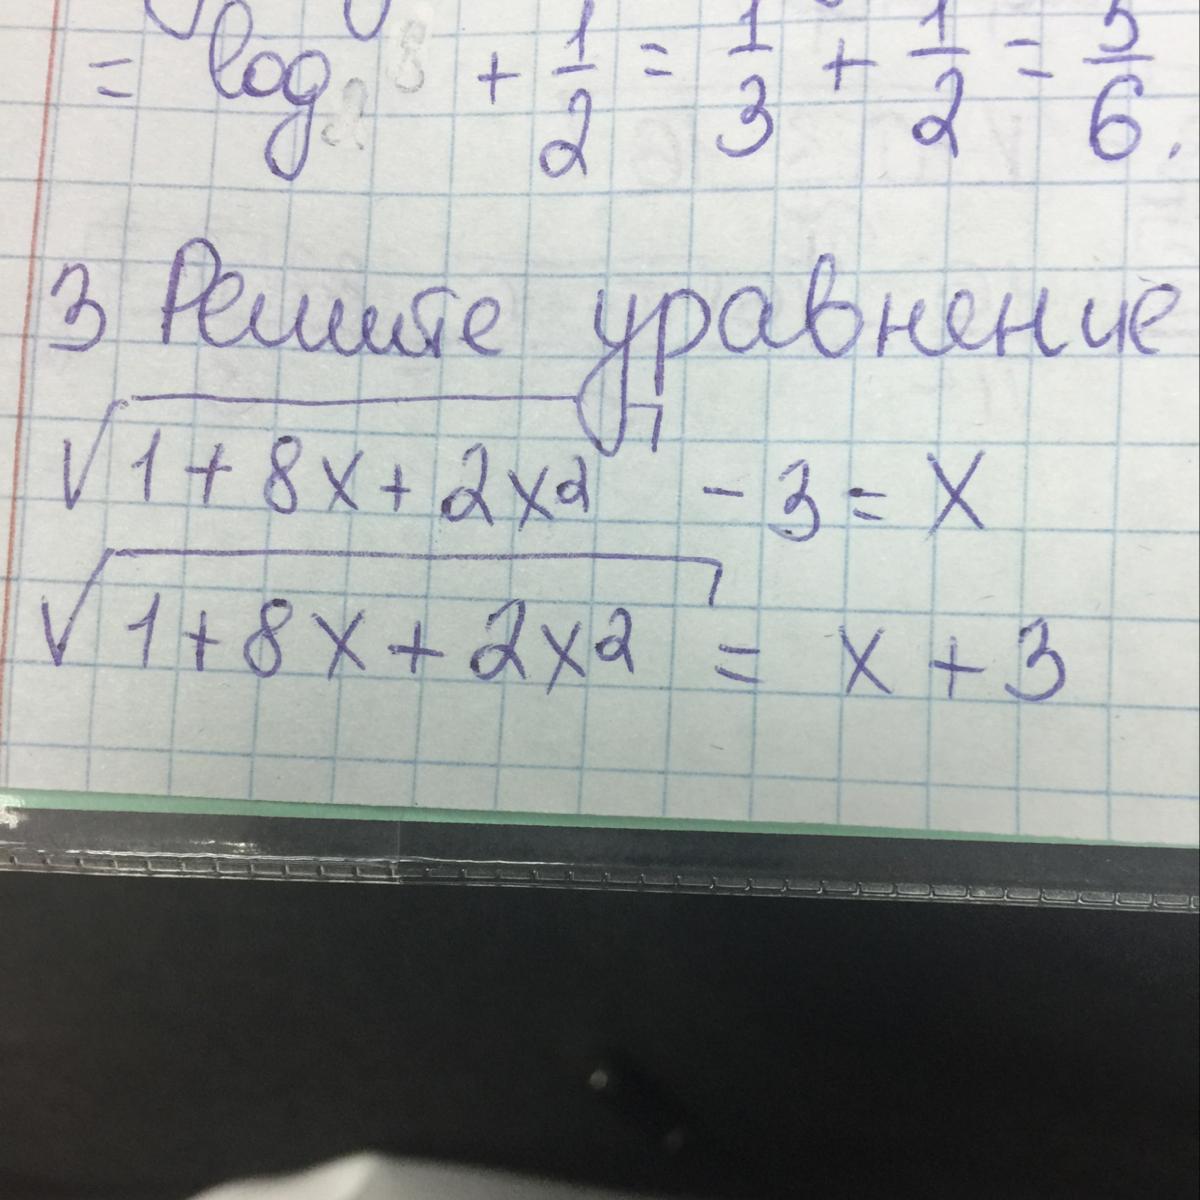 = log + 1/2 = 1/3 + 1/2 = 5/6.
3 Решите уравнение
√1+8x+2x² - 3 = x
√1+8x+2x² = x+3